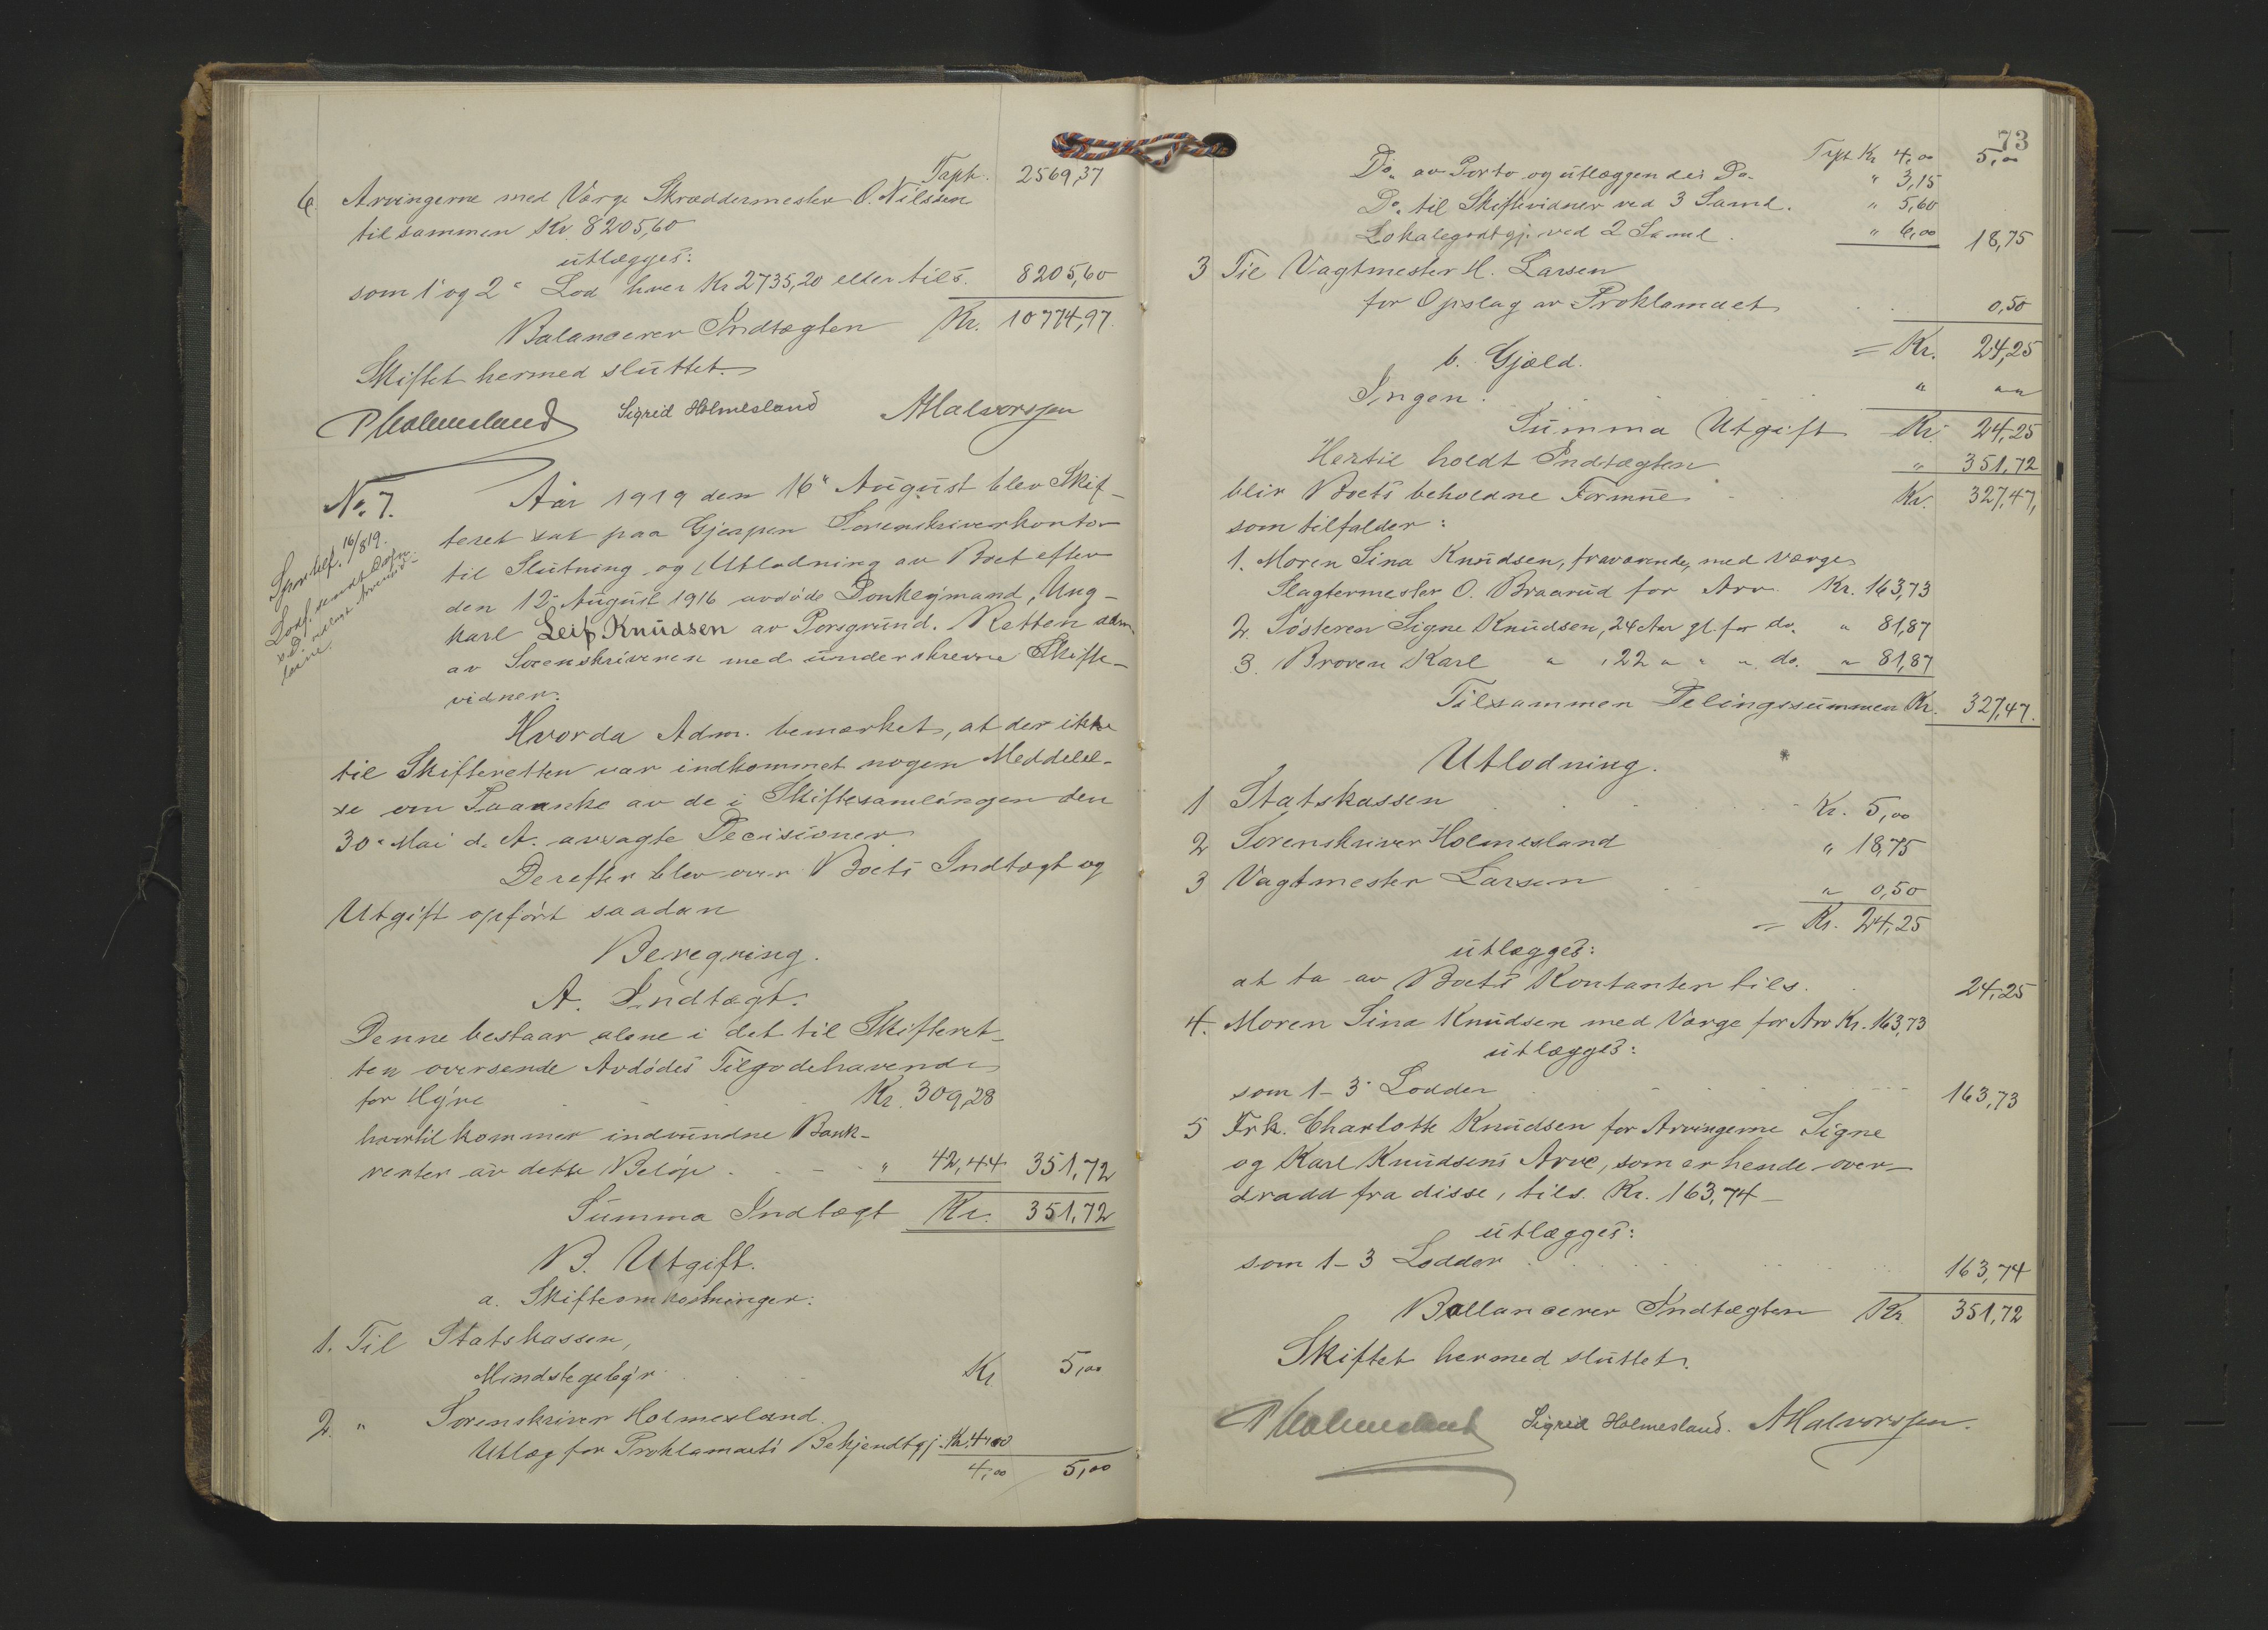 Tspt. 2569,37
6. Arvingerne med Værge Skræddermester O. Nilssen
tilsammen Kr. 8205,60
utlægges:
som 1e og 2e Lod hver Kr 2735,20 eller tils. 8205,60
Balancerer Indtægten Kr. 10774,97.
Skiftet hermed sluttet.
P Holmesland Sigrid Holmesland A Halvorssen
No. 7.
16/8 19.
Lodf. sendt
Aar 1919 den 16e August blev Skif-
teret sat paa Gjerpen Sorenskriverkontor
til Slutning og Utlodning av Boet efter
den 12e August 1916 avdøde Donkeymand, Ung-
karl Leif Knudsen av Porsgrund. Retten adm.
av Sorenskriveren med underskrevne Skifte-
vidner.
Hvorda Adm. bemærket, at der ikke
til Skifteretten var indkommet nogen Meddelel-
se om Paaanke av de i Skiftesamlingen den
30e Mai d. A. avsagte Decisioner.
Derefter blev over Boets Indtægt og
Utgift opført saadan
Beregning.
A. Indtægt.
Denne bestaar alene i det til Skifteret-
ten oversende Avdødes Tilgodehavende
for Hyre Kr. 309,28
hvortil kommer indvundne Bank-
renter av dette Beløp " 42,44 351,72
Summa Indtægt Kr. 351,72
B. Utgift.
a. Skifteomkostninger:
1. Til Statskassen,
Mindstegebyr Kr 5,00
2. " Sorenskriver Holmesland.
Utlæg for Proklamaets Bekjendtgj. Kr. 4,00
4,00 5,00
73
Tspt Kr 4,00 5,00
Do. av Porto og utlæggendes Do. " 3,15
Do. til Skiftevidner ved 3 Saml. " 5,60
Lokalegodtgj. ved 2 Saml. " 6,00 18,75
3 Til Vagtmester H. Larsen
for Opslag av Proklamaet 0,50
= Kr. 24,25
b. Gjæld.
Ingen. " " "
Summa Utgift Kr. 24,25
Hertil holdt Indtægten " 351,72
blir Boets beholdne Formue Kr. 327,47,
som tilfalder:
1. Moren Sina Knudsen, fraværende, med Værge
Slagtermester O. Braarud for Arv. Kr. 163,73
2. Søsteren Signe Knudsen, 24 Aar gl. for do. " 81,87
3. Broren Karl " , 22 " " " do. " 81,87
Tilsammen Delingssummen Kr. 327,47.
Utlodning.
1 Statskassen Kr. 5,00
2 Sorenskriver Holmesland " 18,75
3 Vagtmester Larsen " 0,50
= Kr. 24,25
utlægges:
at ta av Boets Kontanter tils. 24,25
4. Moren Sina Knudsen med Værge for Arv Kr. 163,73
utlægges:
som 1-3 Lodder 163,73
5 Frk. Charlotte Knudsen for Arvingerne Signe
og Karl Knudsens Arve, som er hende over-
dradd fra disse, tils. Kr. 163,74
utlægges:
som 1-3 Lodder 163,74
Ballancerer Indtægten Kr. 351,72
Skiftet hermed sluttet.
P Holmesland Sigrid Holmesland. A Halvorssen.